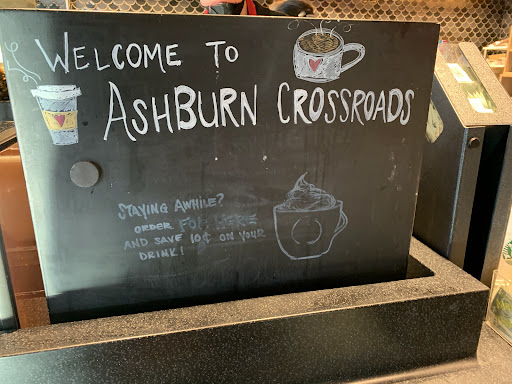 WELCOME TO
ASHBURN CROSSROADS
STAYING AWHILE?
ORDER FOR HERE
AND SAVE 10¢ ON YOUR
DRINK!